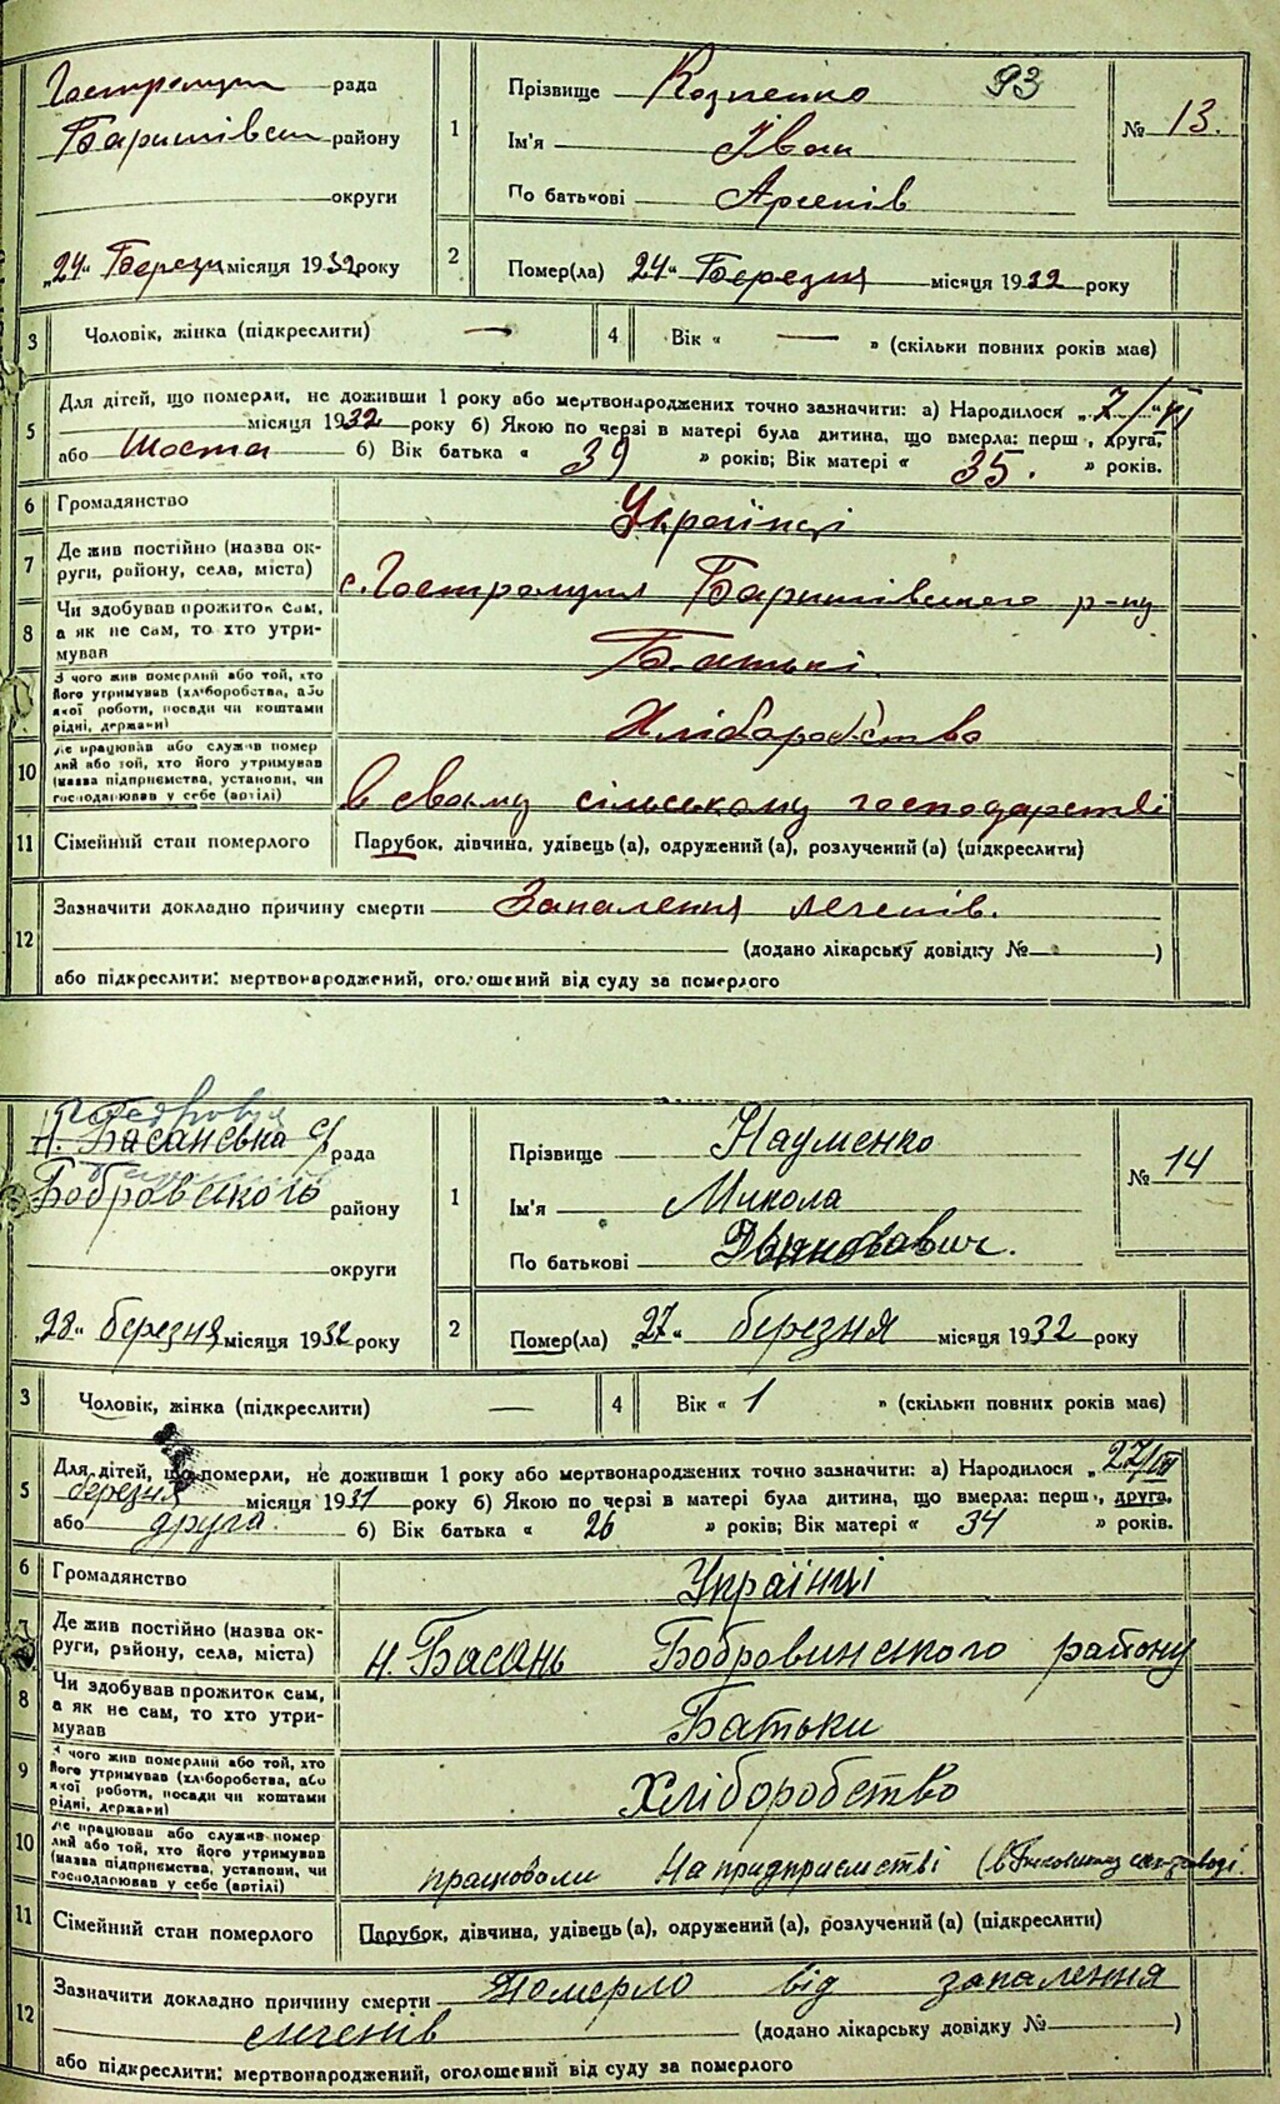 рада
району
округи
1
Прізвище
93
Ім'я Іван
По батькові Арсенів
№ 13.
„24“ Березня місяця 1932 року
2
Помер(ла) 24“ Березня місяця 1932 року
3
Чоловік, жінка (підкреслити) —
4
Вік « — » (скільки повних років має)
5
Для дітей, що померли, не доживши 1 року або мертвонароджених точно зазначити: а) Народилося „7/“VI
місяця 1932 року б) Якою по черзі в матері була дитина, що вмерла: перш , друга,
або Шоста б) Вік батька « 39 » років; Вік матері « 35. » років.
6
Громадянство Українці
7
Де жив постійно (назва ок-
руги, району, села, міста)
8
Чи здобував прожиток сам,
а як не сам, то хто утри-
мував
Батькі
З чого жив померлий або той, хто
його утримував (хліборобства, або
якої роботи, посади чи коштами
рідні, держави)
Хліборобство
10
Де працював або служив помер
лий або той, хто його утримував
(назва підприємства, установи, чи
господарював у себе (артілі)
в своьму сільському господарстві
11
Сімейний стан померлого
Парубок, дівчина, удівець (а), одружений (а), розлучений (а) (підкреслити)
12
Зазначити докладно причину смерти Запалення легенів.
(додано лікарську довідку № )
або підкреслити: мертвонароджений, оголошений від суду за померлого
Н. Басанєвка с/рада
Бобровського району
округи
1
Прізвище Науменко
Ім'я Микола
По батькові
№ 14
„28“ березня місяця 1932 року
2
Помер(ла) „27“ березня місяця 1932 року
3
Чоловік, жінка (підкреслити) —
4
Вік « 1 » (скільки повних років має)
5
Для дітей, що померли, не доживши 1 року або мертвонароджених точно зазначити: а) Народилося „27/III
березня місяця 1931 року б) Якою по черзі в матері була дитина, що вмерла: перш , друга,
або друга. б) Вік батька « 26 » років; Вік матері « 34 » років.
6
Громадянство Українці
7
Де жив постійно (назва ок-
руги, району, села, міста)
Н. Басань Бобровинського району
8
Чи здобував прожиток сам,
а як не сам, то хто утри-
мував
Батьки
9
З чого жив померлий або той, хто
його утримував (хліборобства, або
якої роботи, посади чи коштами
рідні, держави)
Хліборобство
10
Де працював або служив помер
лий або той, хто його утримував
(назва підприємства, установи, чи
господарював у себе (артілі)
працювали На придприємстві
11
Сімейний стан померлого
Парубок, дівчина, удівець (а), одружений (а), розлучений (а) (підкреслити)
12
Зазначити докладно причину смерти Померло від запалення
легенів
(додано лікарську довідку № )
або підкреслити: мертвонароджений, оголошений від суду за померлого